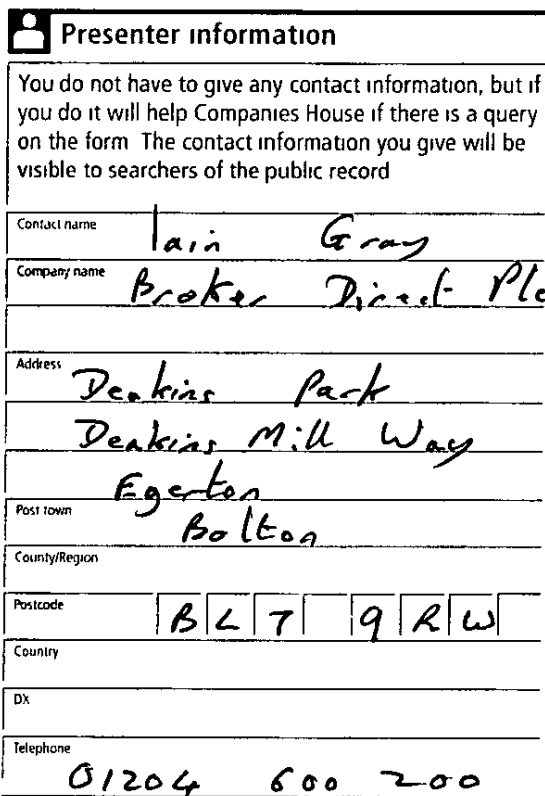 Presenter information
You do not have to give any contact information, but if
you do it will help Companies House if there is a query
on the form The contact information you give will be
visible to searchers of the public record
Contact name Iain Gray
Company name Broker Direct Plc
Address Deakins Park
Deakins Mill Way
Egerton
Post town Bolton
County/Region
Postcode BL7 9RW
Country
DX
Telephone 01204 600 200